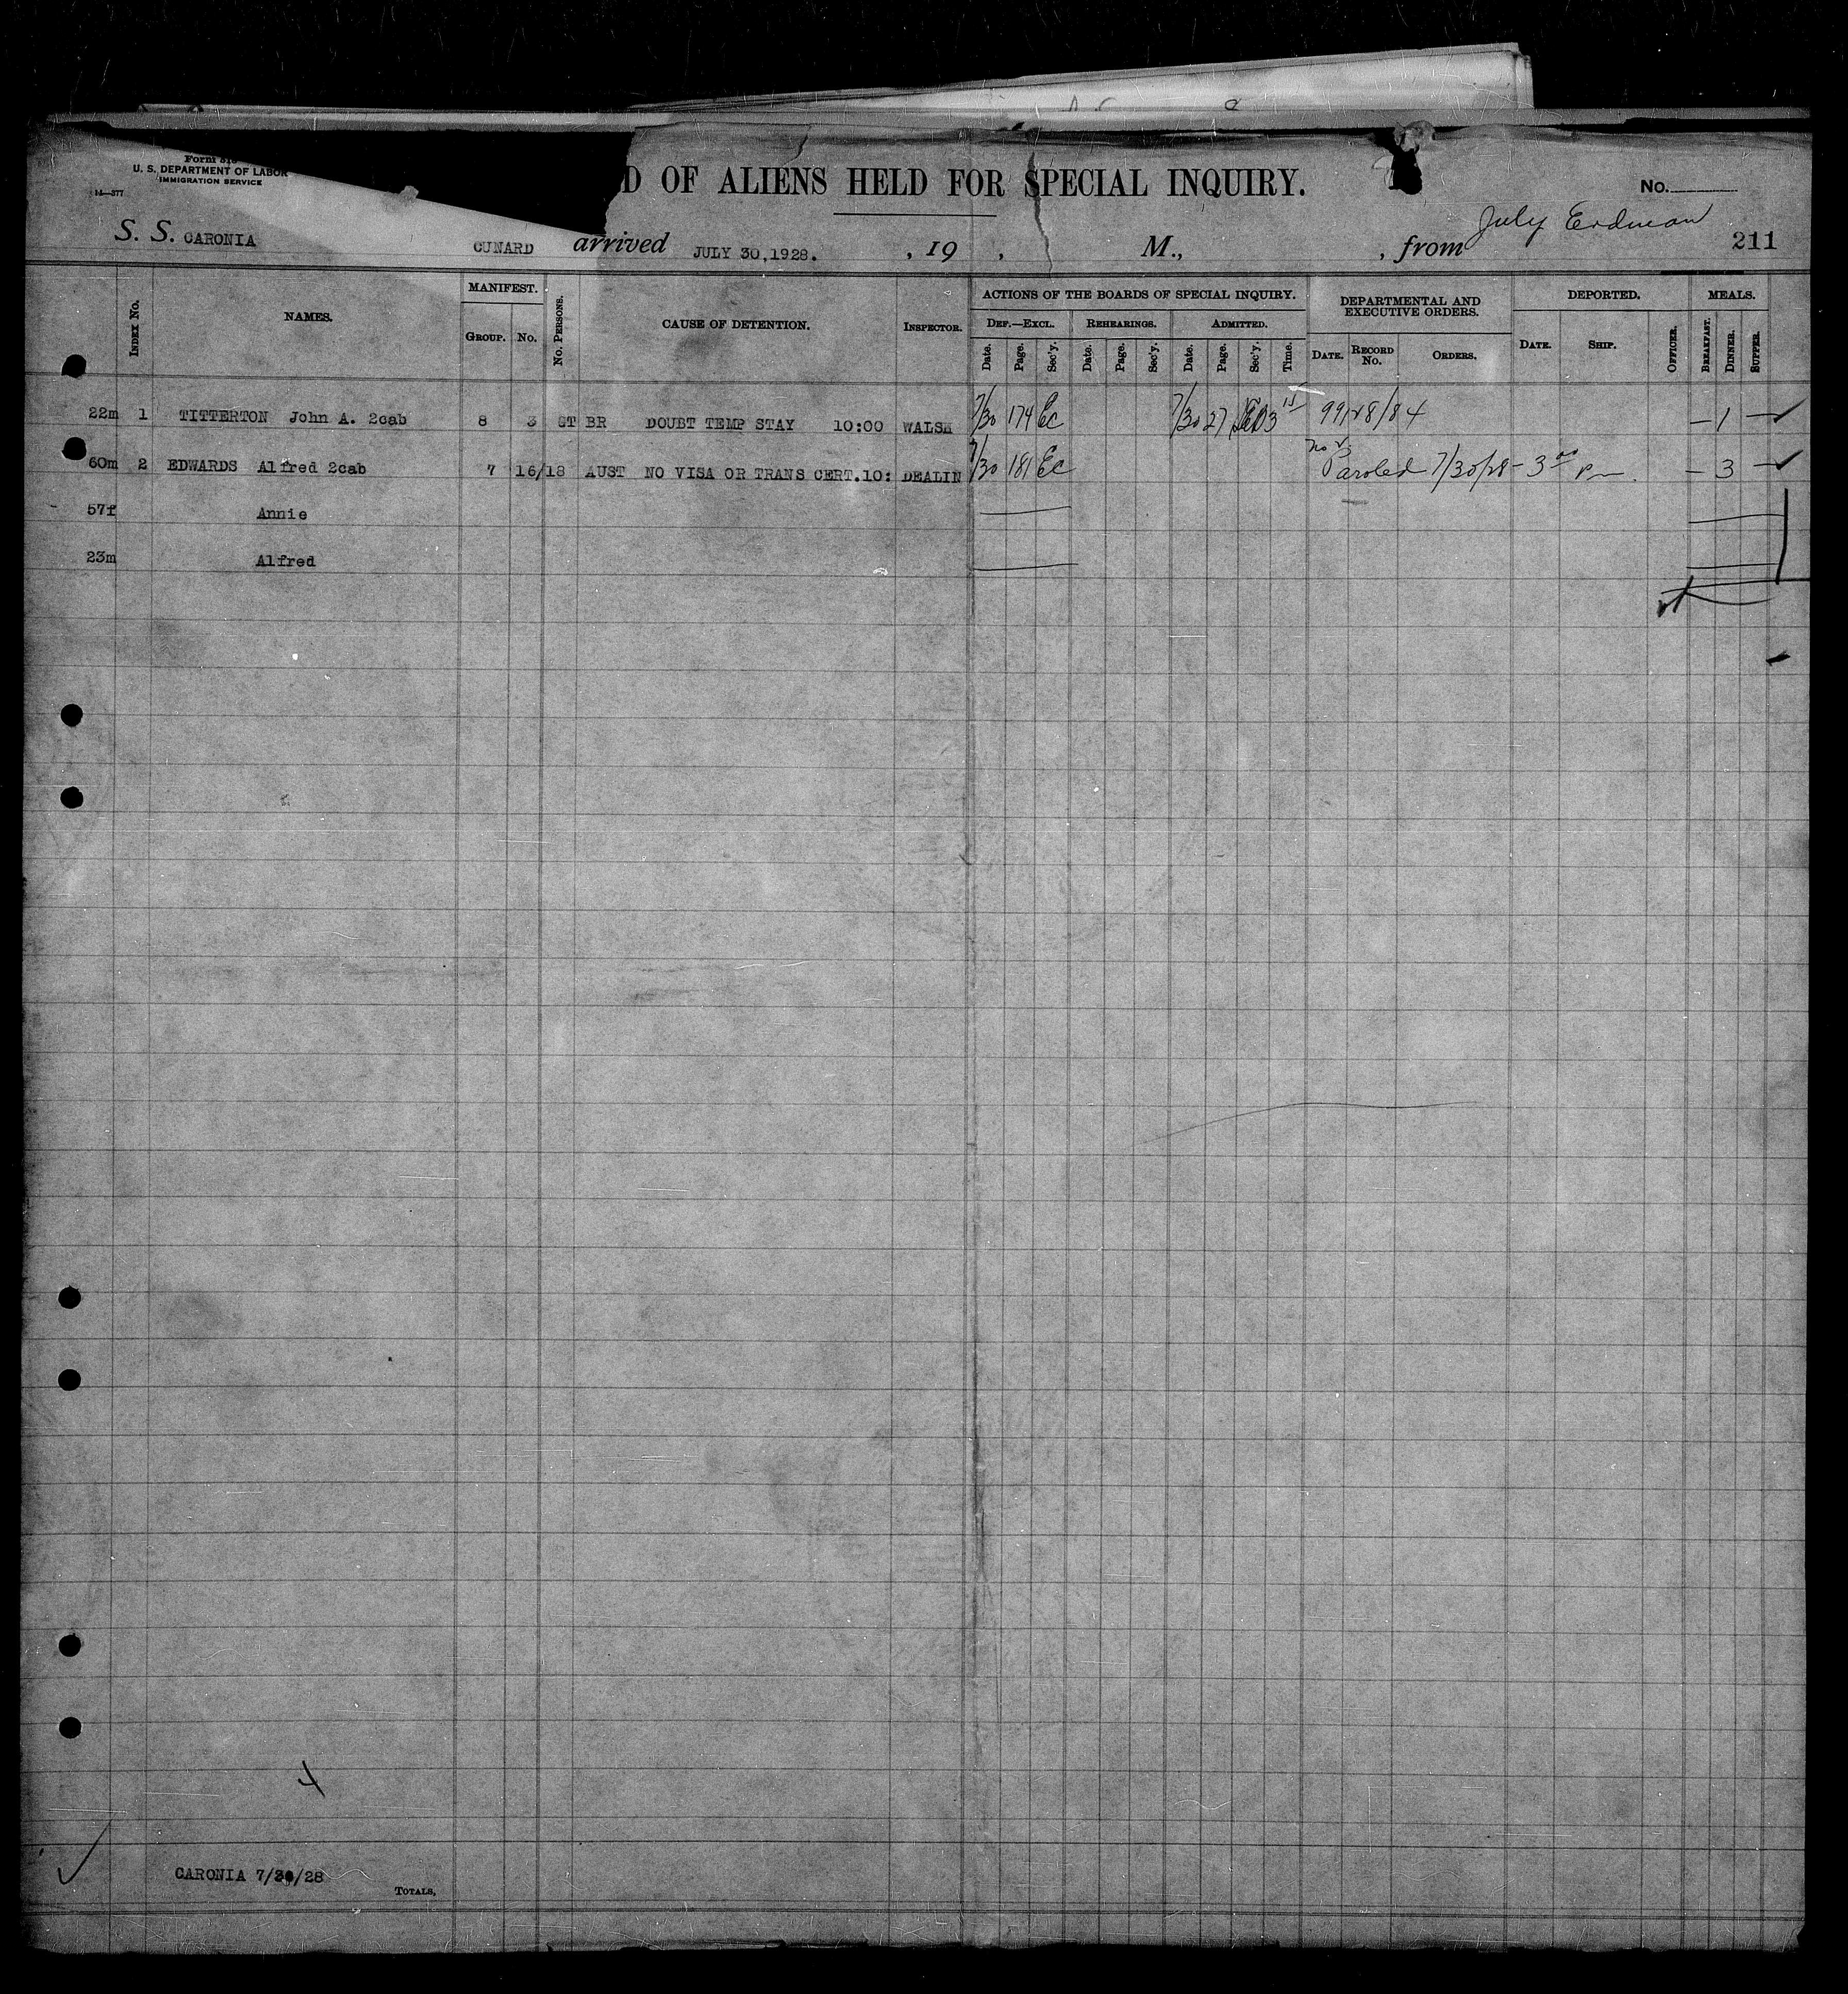 Form
U. S. DEPARTMENT OF LABOR
IMMIGRATION SERVICE
14—377
D OF ALIENS HELD FOR SPECIAL INQUIRY.
No.
S. S. CARONIA CUNARD arrived JULY 30,1928. , 19 , M., , from July Erdman 211
INDEX No. NAMES. MANIFEST. GROUP. No. No. PERSONS. CAUSE OF DETENTION. INSPECTOR.
ACTIONS OF THE BOARDS OF SPECIAL INQUIRY.
DEF.—EXCL. REHEARINGS. ADMITTED.
Date. Page. Sec'y. Date. Page. Sec'y. Date. Page. Sec'y. Time.
DEPARTMENTAL AND EXECUTIVE ORDERS.
DATE. RECORD No. ORDERS.
DEPORTED.
DATE. SHIP. OFFICER.
MEALS.
BREAKFAST. DINNER. SUPPER.
22m 1 TITTERTON John A. 2cab 8 3 ST BR DOUBT TEMP STAY 10:00 WALSH 7/30 174 Ec 7/30 27 3 15 99128/84 — 1 —
60m 2 EDWARDS Alfred 2cab 7 16/18 AUST NO VISA OR TRANS CERT.10: DEALIN 7/30 181 Ec Paroled 7/30/28 - 3 00 Pm. — 3 —
57f Annie
23m Alfred
4
CARONIA 7/30/28
TOTALS,